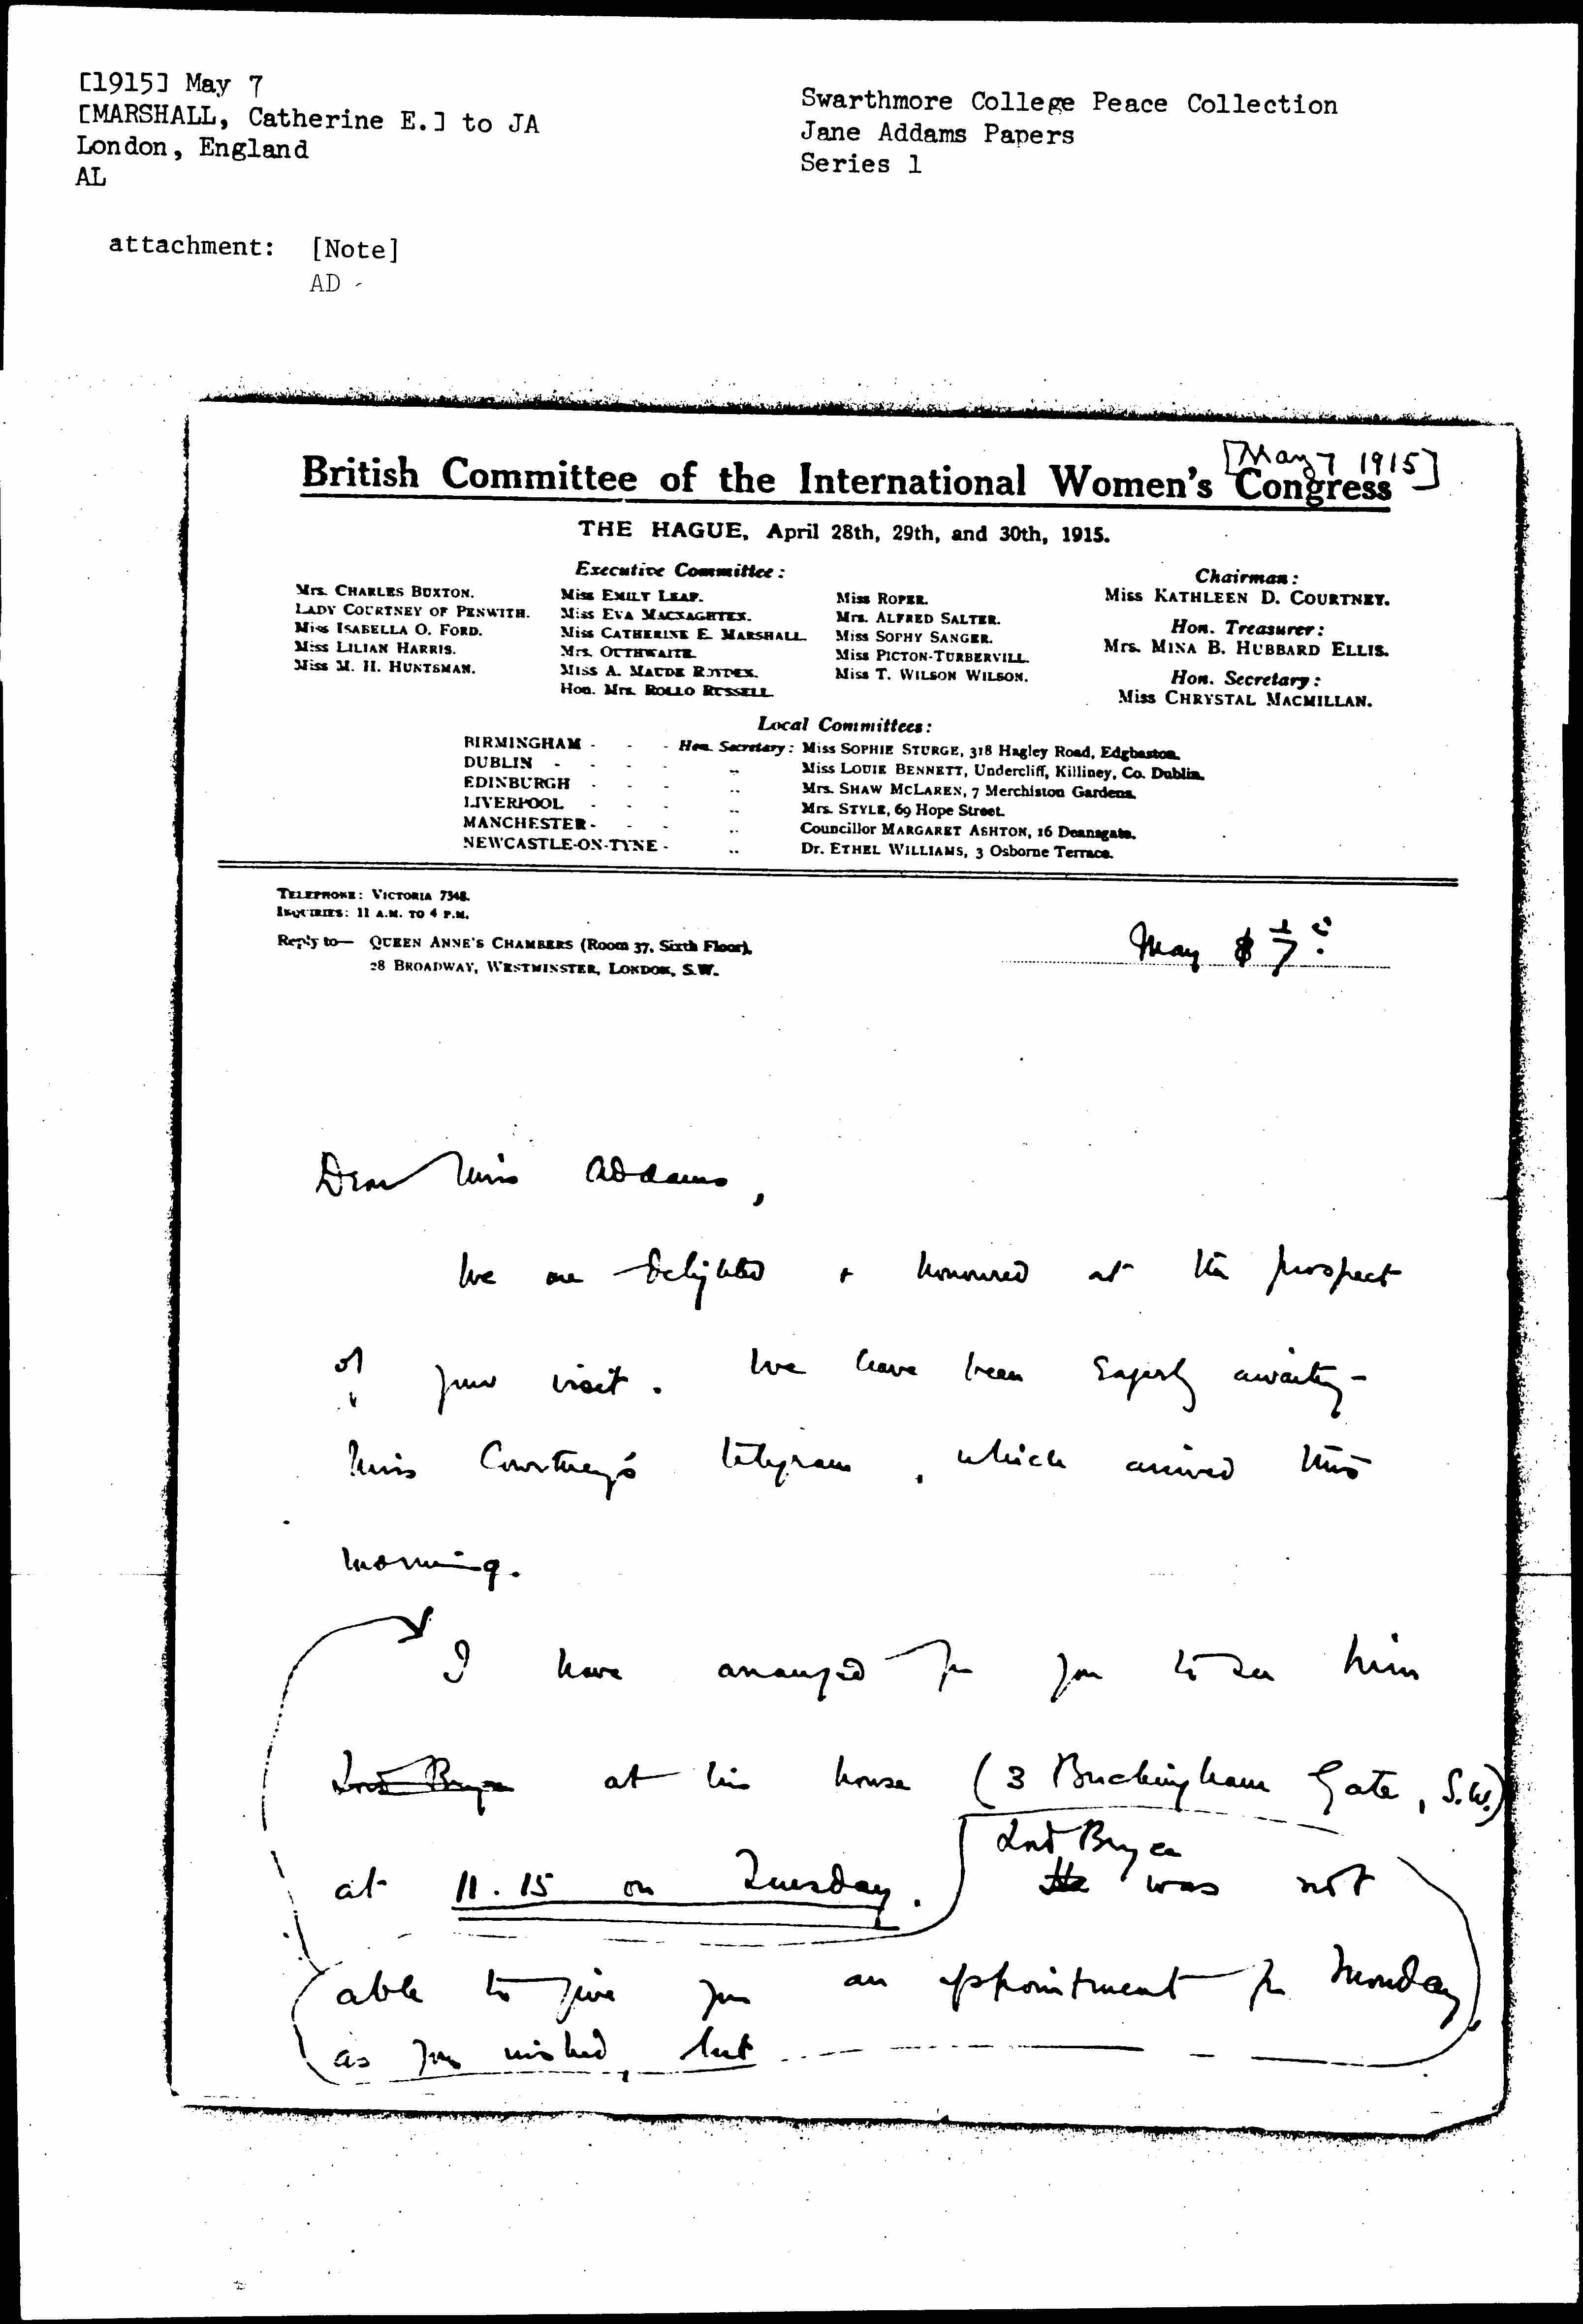 [1915] May 7
[MARSHALL, Catherine E.] to JA
London, England
AL
attachment: [Note]
AD -
Swarthmore College Peace Collection
Jane Addams Papers
Series 1
[May 7 1915]
British Committee of the International Women's Congress
THE HAGUE, April 28th, 29th, and 30th, 1915.
Executive Committee:
Mrs. CHARLES BUXTON.
LADY COURTNEY OF PENWITH.
Miss ISABELLA O. FORD.
Miss LILIAN HARRIS.
Miss M. H. HUNTSMAN.
Miss EMILY LEAF.
Miss EVA MACNAGHTEN.
Miss CATHERINE E. MARSHALL.
Mrs. OUTHWAITE.
Miss A. MAUDE ROYDEN.
Hon. Mrs. ROLLO RUSSELL.
Miss ROPER.
Mrs. ALFRED SALTER.
Miss SOPHY SANGER.
Miss PICTON-TURBERVILL.
Miss T. WILSON WILSON.
Chairman:
Miss KATHLEEN D. COURTNEY.
Hon. Treasurer:
Mrs. MINA B. HUBBARD ELLIS.
Hon. Secretary:
Miss CHRYSTAL MACMILLAN.
Local Committees:
BIRMINGHAM - - - Hon. Secretary: Miss SOPHIE STURGE, 318 Hagley Road, Edgbaston.
DUBLIN - - - - " Miss LOUIE BENNETT, Undercliff, Killiney, Co. Dublin.
EDINBURGH - - - " Mrs. SHAW MCLAREN, 7 Merchiston Gardens.
LIVERPOOL - - - " Mrs. STYLE, 69 Hope Street.
MANCHESTER - - - " Councillor MARGARET ASHTON, 16 Deansgate.
NEWCASTLE-ON-TYNE - " Dr. ETHEL WILLIAMS, 3 Osborne Terrace.
TELEPHONE: VICTORIA 7348.
INQUIRIES: 11 A.M. TO 4 P.M.
Reply to— QUEEN ANNE'S CHAMBERS (Room 37, Sixth Floor),
28 BROADWAY, WESTMINSTER, LONDON, S.W.
May 7
Dear Miss Addams,
We are delighted + honoured at the prospect
of your visit. We have been eagerly awaiting
Miss Courtney's telegram, which arrived this
morning.
I have arranged for you to see him
Lord Bryce at his house (3 Buckingham Gate, S.W.)
Lord Bryce
at 11.15 on Tuesday. He was not
able to give you an appointment for Monday,
as you wished, but